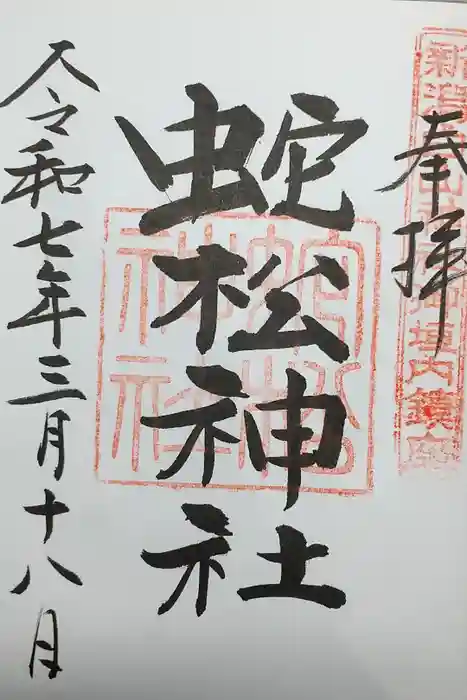 奉拝
新潟 境内鎮座
蛇松神社
蛇松神社
令和七年三月十八日